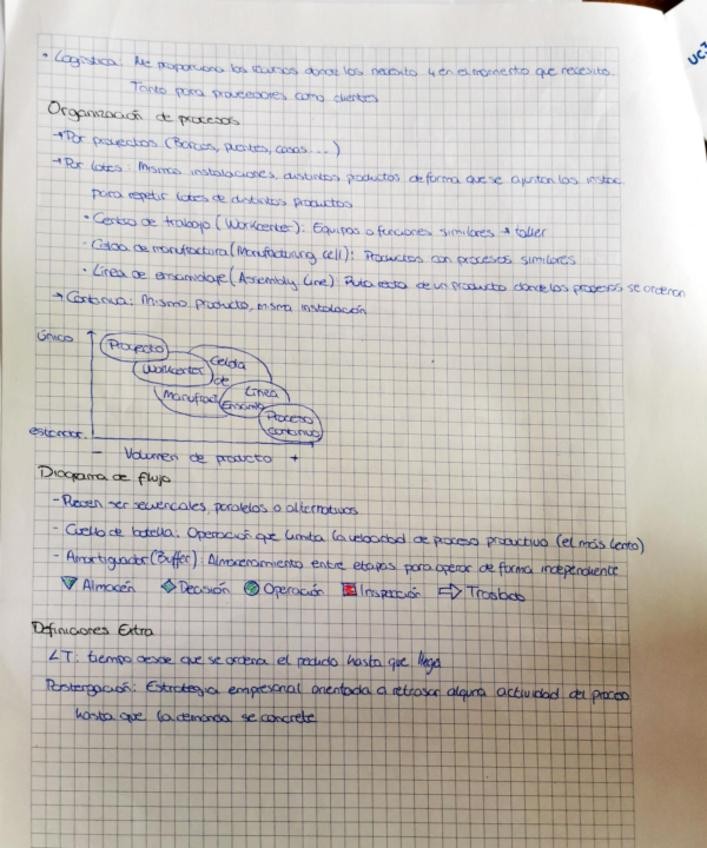 • Logística: Me proporciona los recursos donde los necesito y en el momento que necesito.
Tanto para proveedores como clientes
Organización de procesos
→ Por proyectos (Barcos, puentes, casas...)
→ Por lotes: Mismas instalaciones, distintos productos de forma que se ajustan las instac.
para repetir lotes de distintos productos
• Centro de trabajo (Workcenter): Equipos o funciones similares → taller
• Celda de manufactura (Manufacturing cell): Productos con procesos similares
• Línea de ensamblaje (Assembly Line) Ruta recta de un producto donde los procesos se ordenan
→ Continua: Mismo producto, misma instalación
único
Proyecto
Workcenter
Celda
de
Manufact
Línea
Ensamb
Proceso
continuo
estandar.
- Volumen de producto +
Diagrama de flujo
- Pueden ser secuenciales, paralelos o alternativos
- Cuello de botella: Operación que limita la velocidad de proceso productivo (el más lento)
- Amortiguador (Buffer): Almacenamiento entre etapas para operar de forma independiente
Almacén Decisión Operación Inspección Traslado
Definiciones Extra
LT: tiempo desde que se ordena el pedido hasta que llega
Postergación: Estrategia empresarial orientada a retrasar alguna actividad del proceso
hasta que la demanda se concrete